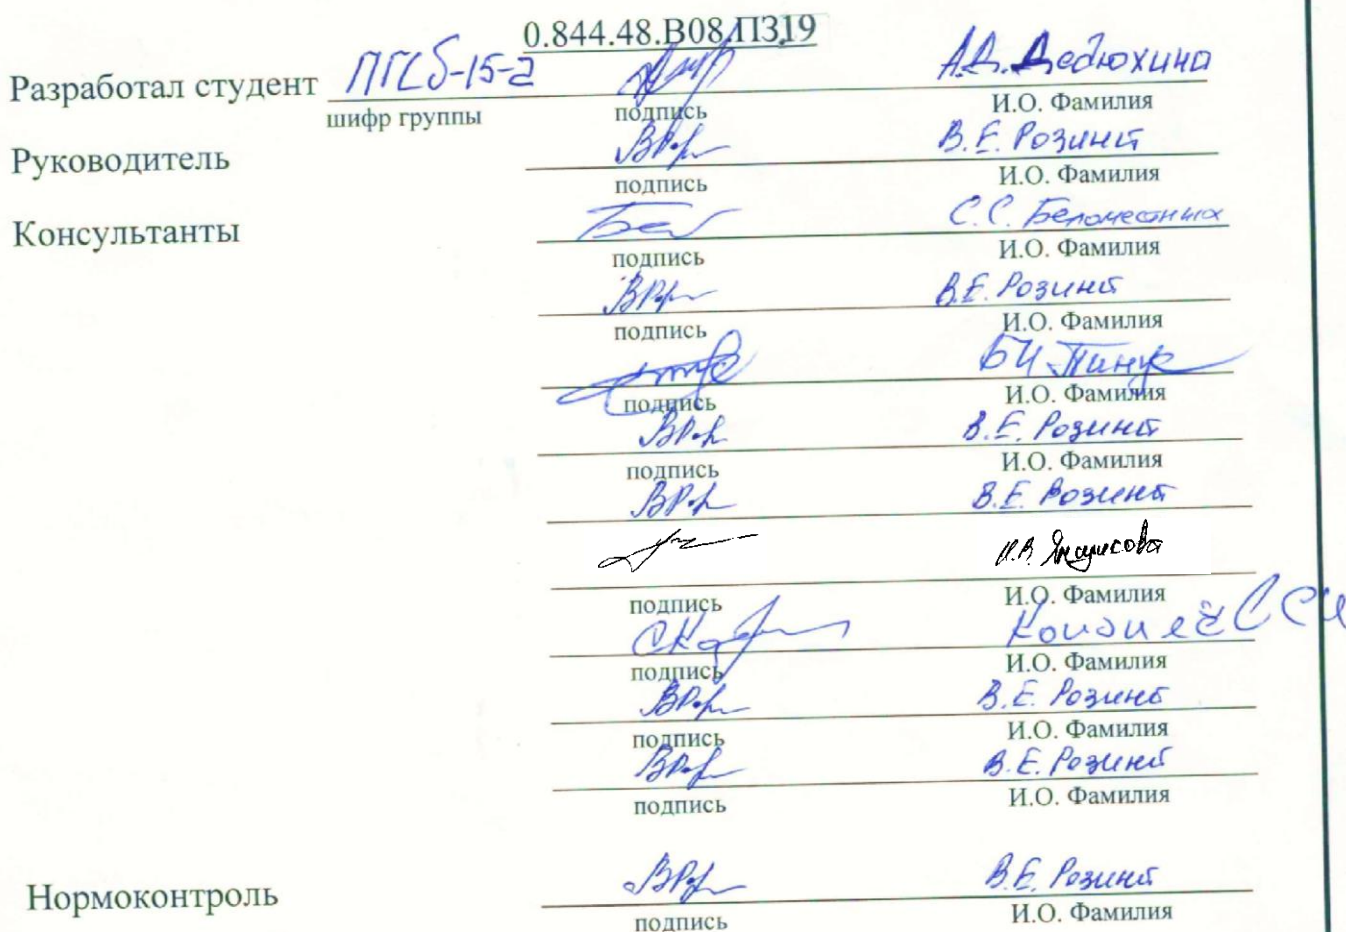 0.844.48.В08.ПЗ19
Разработал студент ПГСб-15-2 А.Д. Дедюхина
шифр группы подпись И.О. Фамилия
Руководитель В.Е. Розинт
подпись И.О. Фамилия
Консультанты С.С. Беломестных
подпись И.О. Фамилия
В.Е. Розинт
подпись И.О. Фамилия
Б.И. Пинус
подпись И.О. Фамилия
В.Е. Розинт
подпись И.О. Фамилия
В.Е. Розинт
подпись И.О. Фамилия
В.Е. Розинт
подпись И.О. Фамилия
В.Е. Розинт
подпись И.О. Фамилия
Нормоконтроль В.Е. Розинт
подпись И.О. Фамилия